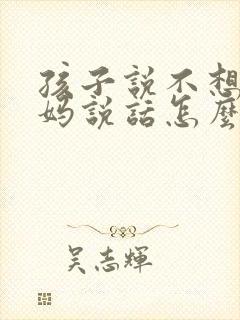 孩子說不想
媽說話怎麼
吳志輝